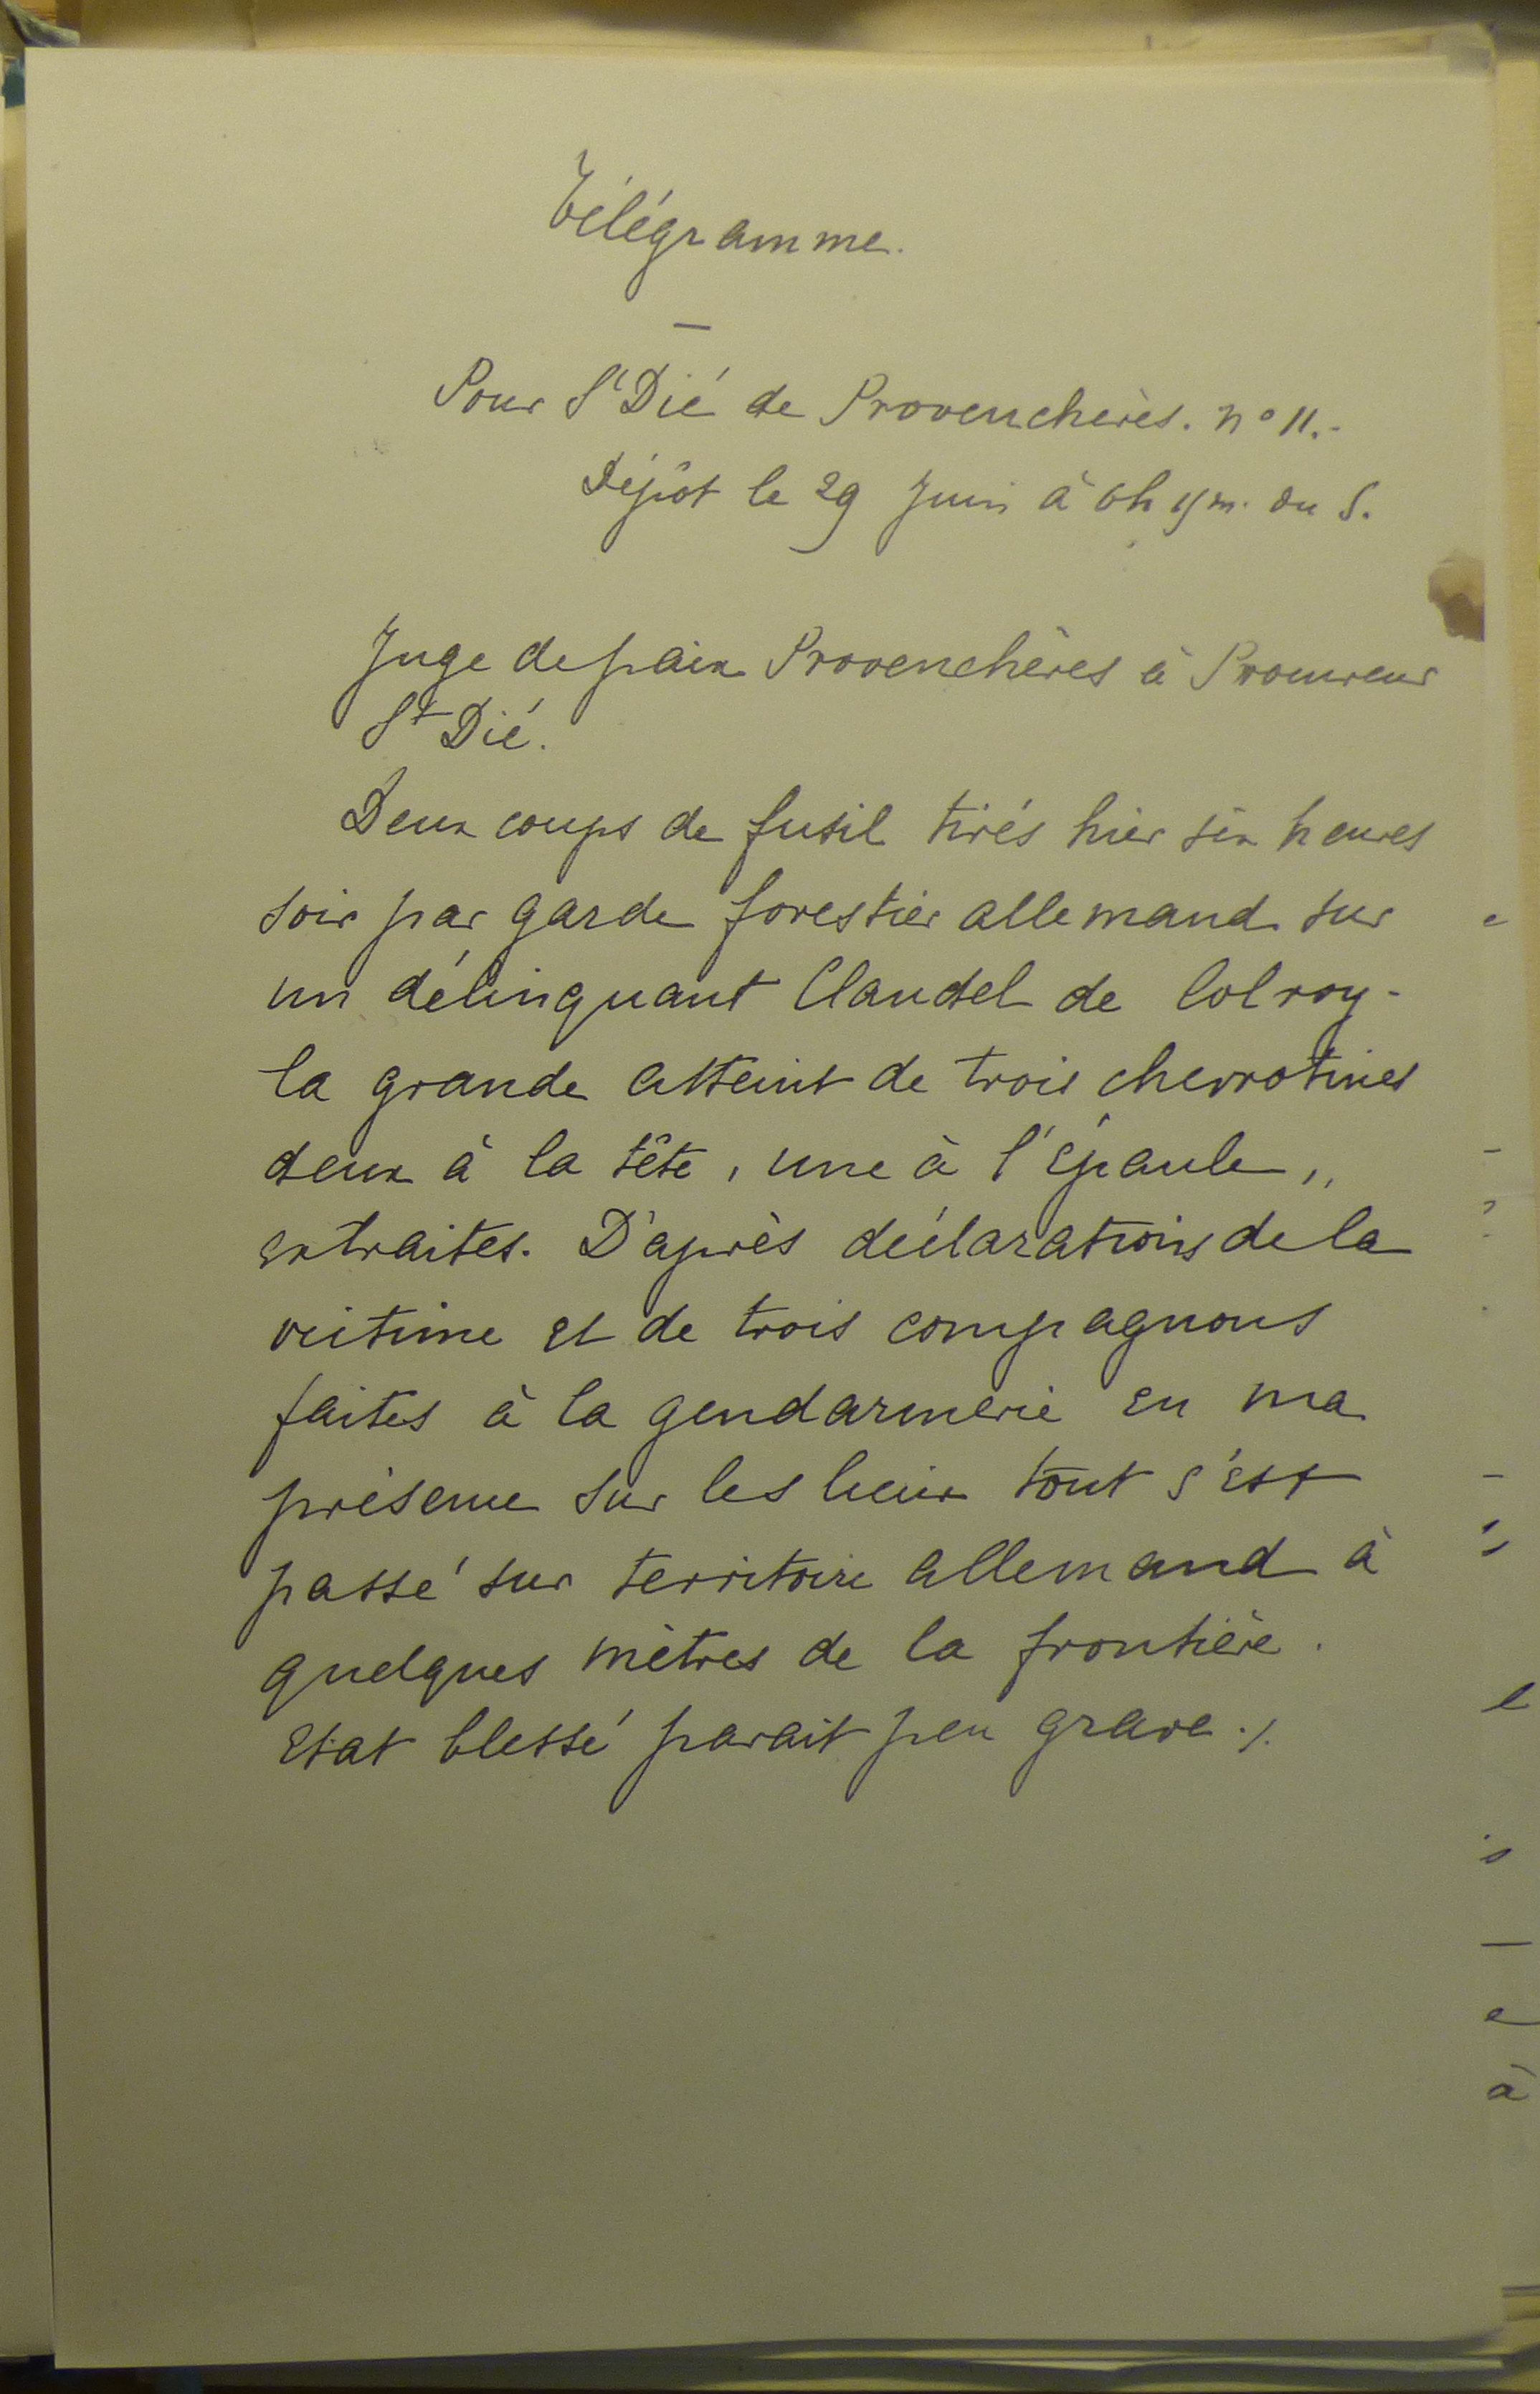 Télégramme.
—
Pour St Dié de Provenchères. n° 11.-
Dépôt le 29 Juin à 6h m. du S.
Juge de paix Provenchères à Procureur
St Dié.
Deux coups de fusil tirés hier six heures
soir par garde forestier allemand sur
un délinquant Claudel de Colroy-
la grande atteint de trois chevrotines
deux à la tête, une à l'épaule,,
extraites. D'après déclarations de la
victime et de trois compagnons
faites à la gendarmerie en ma
présence sur les lieux tout s'est
passé sur territoire allemand à
quelques mètres de la frontière.
Etat blessé parait peu grave ./.